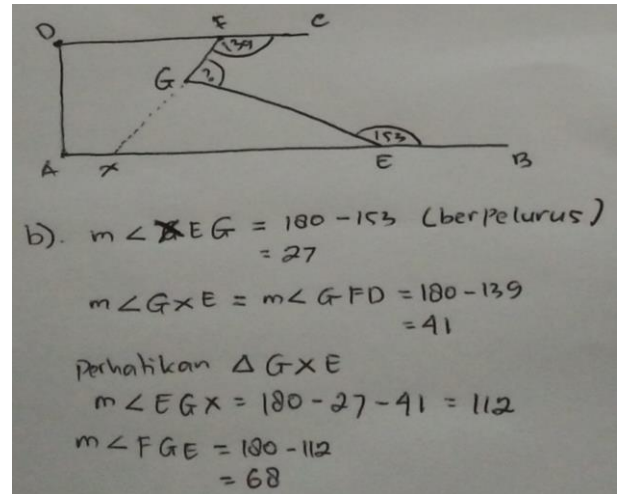 D F C
139
G ?
153
A X E B
b). m∠XEG = 180 - 153 (berpelurus)
= 27
m∠GXE = m∠GFD = 180 - 139
= 41
Perhatikan Δ GXE
m∠EGX = 180 - 27 - 41 = 112
m∠FGE = 180 - 112
= 68